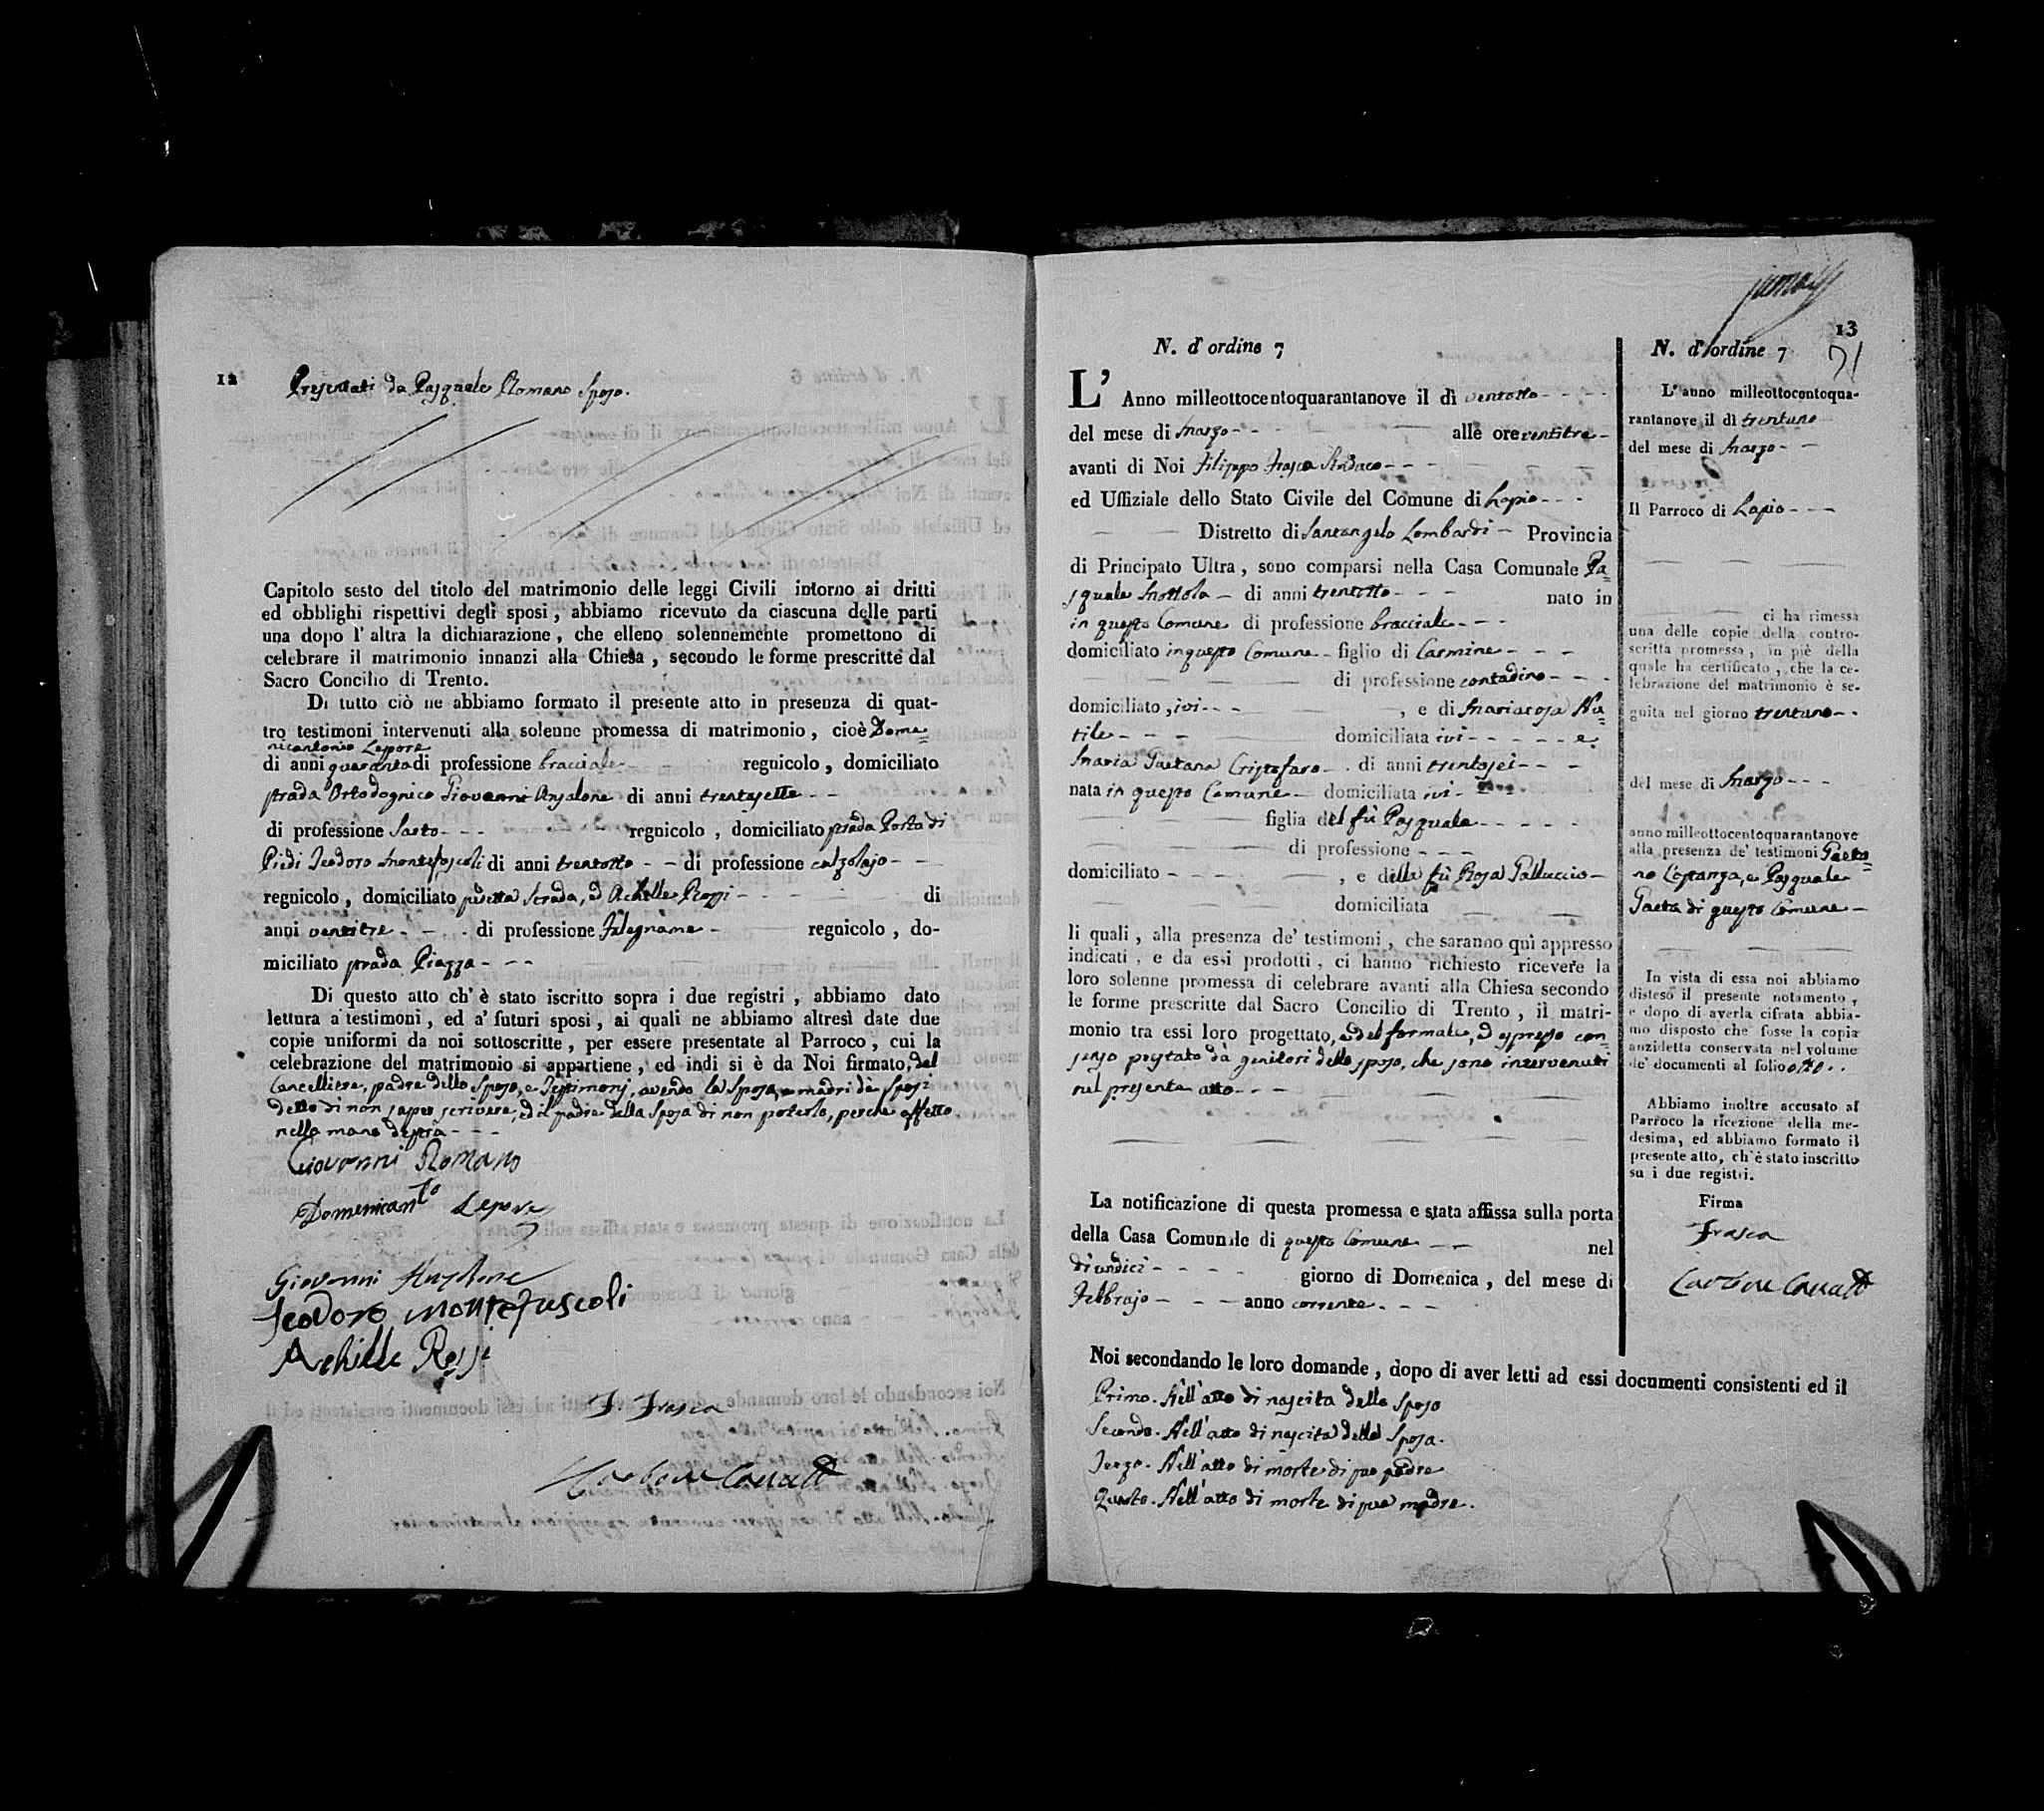 12
Presentati da Pasquale Romano Sposo.
Capitolo sesto del titolo del matrimonio delle leggi Civili intorno ai dritti
ed obblighi rispettivi degli sposi, abbiamo ricevuto da ciascuna delle parti
una dopo l'altra la dichiarazione, che elleno solennemente promettono di
celebrare il matrimonio innanzi alla Chiesa, secondo le forme prescritte dal
Sacro Concilio di Trento.
Di tutto ciò ne abbiamo formato il presente atto in presenza di quat-
tro testimoni intervenuti alla solenne promessa di matrimonio, cioè Dome=
nicantonio Lepore
di anni quaranta di professione bracciale - regnicolo, domiciliato
strada Ortodognico Giovanni Anzalone di anni trentasette - -
di professione Sarto - - - regnicolo, domiciliato strada Porta di
Piedi Teodoro Montefuscoli di anni trentotto - - di professione calzolajo - -
regnicolo, domiciliato suddetta Strada, ed Achille Rossi - - - di
anni ventitre - - - di professione Falegname - regnicolo, do-
miciliato strada Piazza - - -
Di questo atto ch'è stato iscritto sopra i due registri, abbiamo dato
lettura a'testimoni, ed a'futuri sposi, ai quali ne abbiamo altresì date due
copie uniformi da noi sottoscritte, per essere presentate al Parroco, cui la
celebrazione del matrimonio si appartiene, ed indi si è da Noi firmato, dal
Cancelliere, padre dello Sposo, e Testimonj, avendo la Sposa, e madri dè Sposi
detto di non saper scrivere, ed il padre della Sposa di non poterlo, perchè affetto
nella mano destra - - -
Giovanni Romano
Domenicant.o Lepore
Giovanni Anzalone
Teodoro Montefuscoli
Achille Rossi
F. Frasca
13
N. d'ordine 7
L'Anno milleottocentoquarantanove il dì ventotto - - - -
del mese di Marzo - - - alle ore ventitre -
avanti di Noi Filippo Frasca Sindaco - - -
ed Uffiziale dello Stato Civile del Comune di Lapio - - -
Distretto di Santangelo Lombardi - Provincia
di Principato Ultra, sono comparsi nella Casa Comunale Pa=
squale Mottola - di anni trentotto - - - nato in
in questo Comune di professione bracciale - - -
domiciliato in questo Comune - figlio di Carmine - - - -
di professione contadino - - -
domiciliato, ivi - - - , e di Mariarosa Na=
tile - - - domiciliata ivi - - - - - e
Maria Gaetana Cristofaro - . di anni trentasei - - -
nata in questo Comune - domiciliata ivi -
figlia del fù Pasquale - - - - -
di professione - - -
domiciliato - - - - , e della fù Rosa Palluccio -
domiciliata
li quali, alla presenza de' testimoni, che saranno qui appresso
indicati, e da essi prodotti, ci hanno richiesto ricevere la
loro solenne promessa di celebrare avanti alla Chiesa secondo
le forme prescritte dal Sacro Concilio di Trento, il matri-
monio tra essi loro progettato, e del formale, ed espresso con=
senso prestato dà genitori dello sposo, che sono intervenuti
nel presente atto - - -
La notificazione di questa promessa e stata affissa sulla porta
della Casa Comunale di questo Comune - - nel
dì undici - - - - giorno di Domenica, del mese di
Febbrajo - - - anno corrente - - -
Noi secondando le loro domande, dopo di aver letti ad essi documenti consistenti ed il
Primo. Nell'atto di nascita dello Sposo
Secondo. Nell'atto di nascita della Sposa.
Terzo. Nell'atto di morte di suo padre
Quarto. Nell'atto di morte di sua madre.
N. d'ordine 7
L'anno milleottocentoqua-
rantanove il dì trentuno
del mese di Marzo - -
Il Parroco di Lapio - - -
ci ha rimessa
una delle copie della contro-
scritta promessa, in piè della
quale ha certificato, che la ce-
lebrazione del matrimonio è se-
guita nel giorno trentuno - -
del mese di Marzo - - -
anno milleottocentoquarantanove
alla presenza de' testimoni Gaeta=
no Costanza, e Pasquale
Gaeta di questo Comune -
In vista di essa noi abbiamo
disteso il presente notamento,
e dopo di averla cifrata abbia-
mo disposto che fosse la copia
anzidetta conservata nel volume
de' documenti al folio otto . .
Abbiamo inoltre accusato al
Parroco la ricezione della me-
desima, ed abbiamo formato il
presente atto, ch'è stato inscritto
su i due registri.
Firma
Frasca